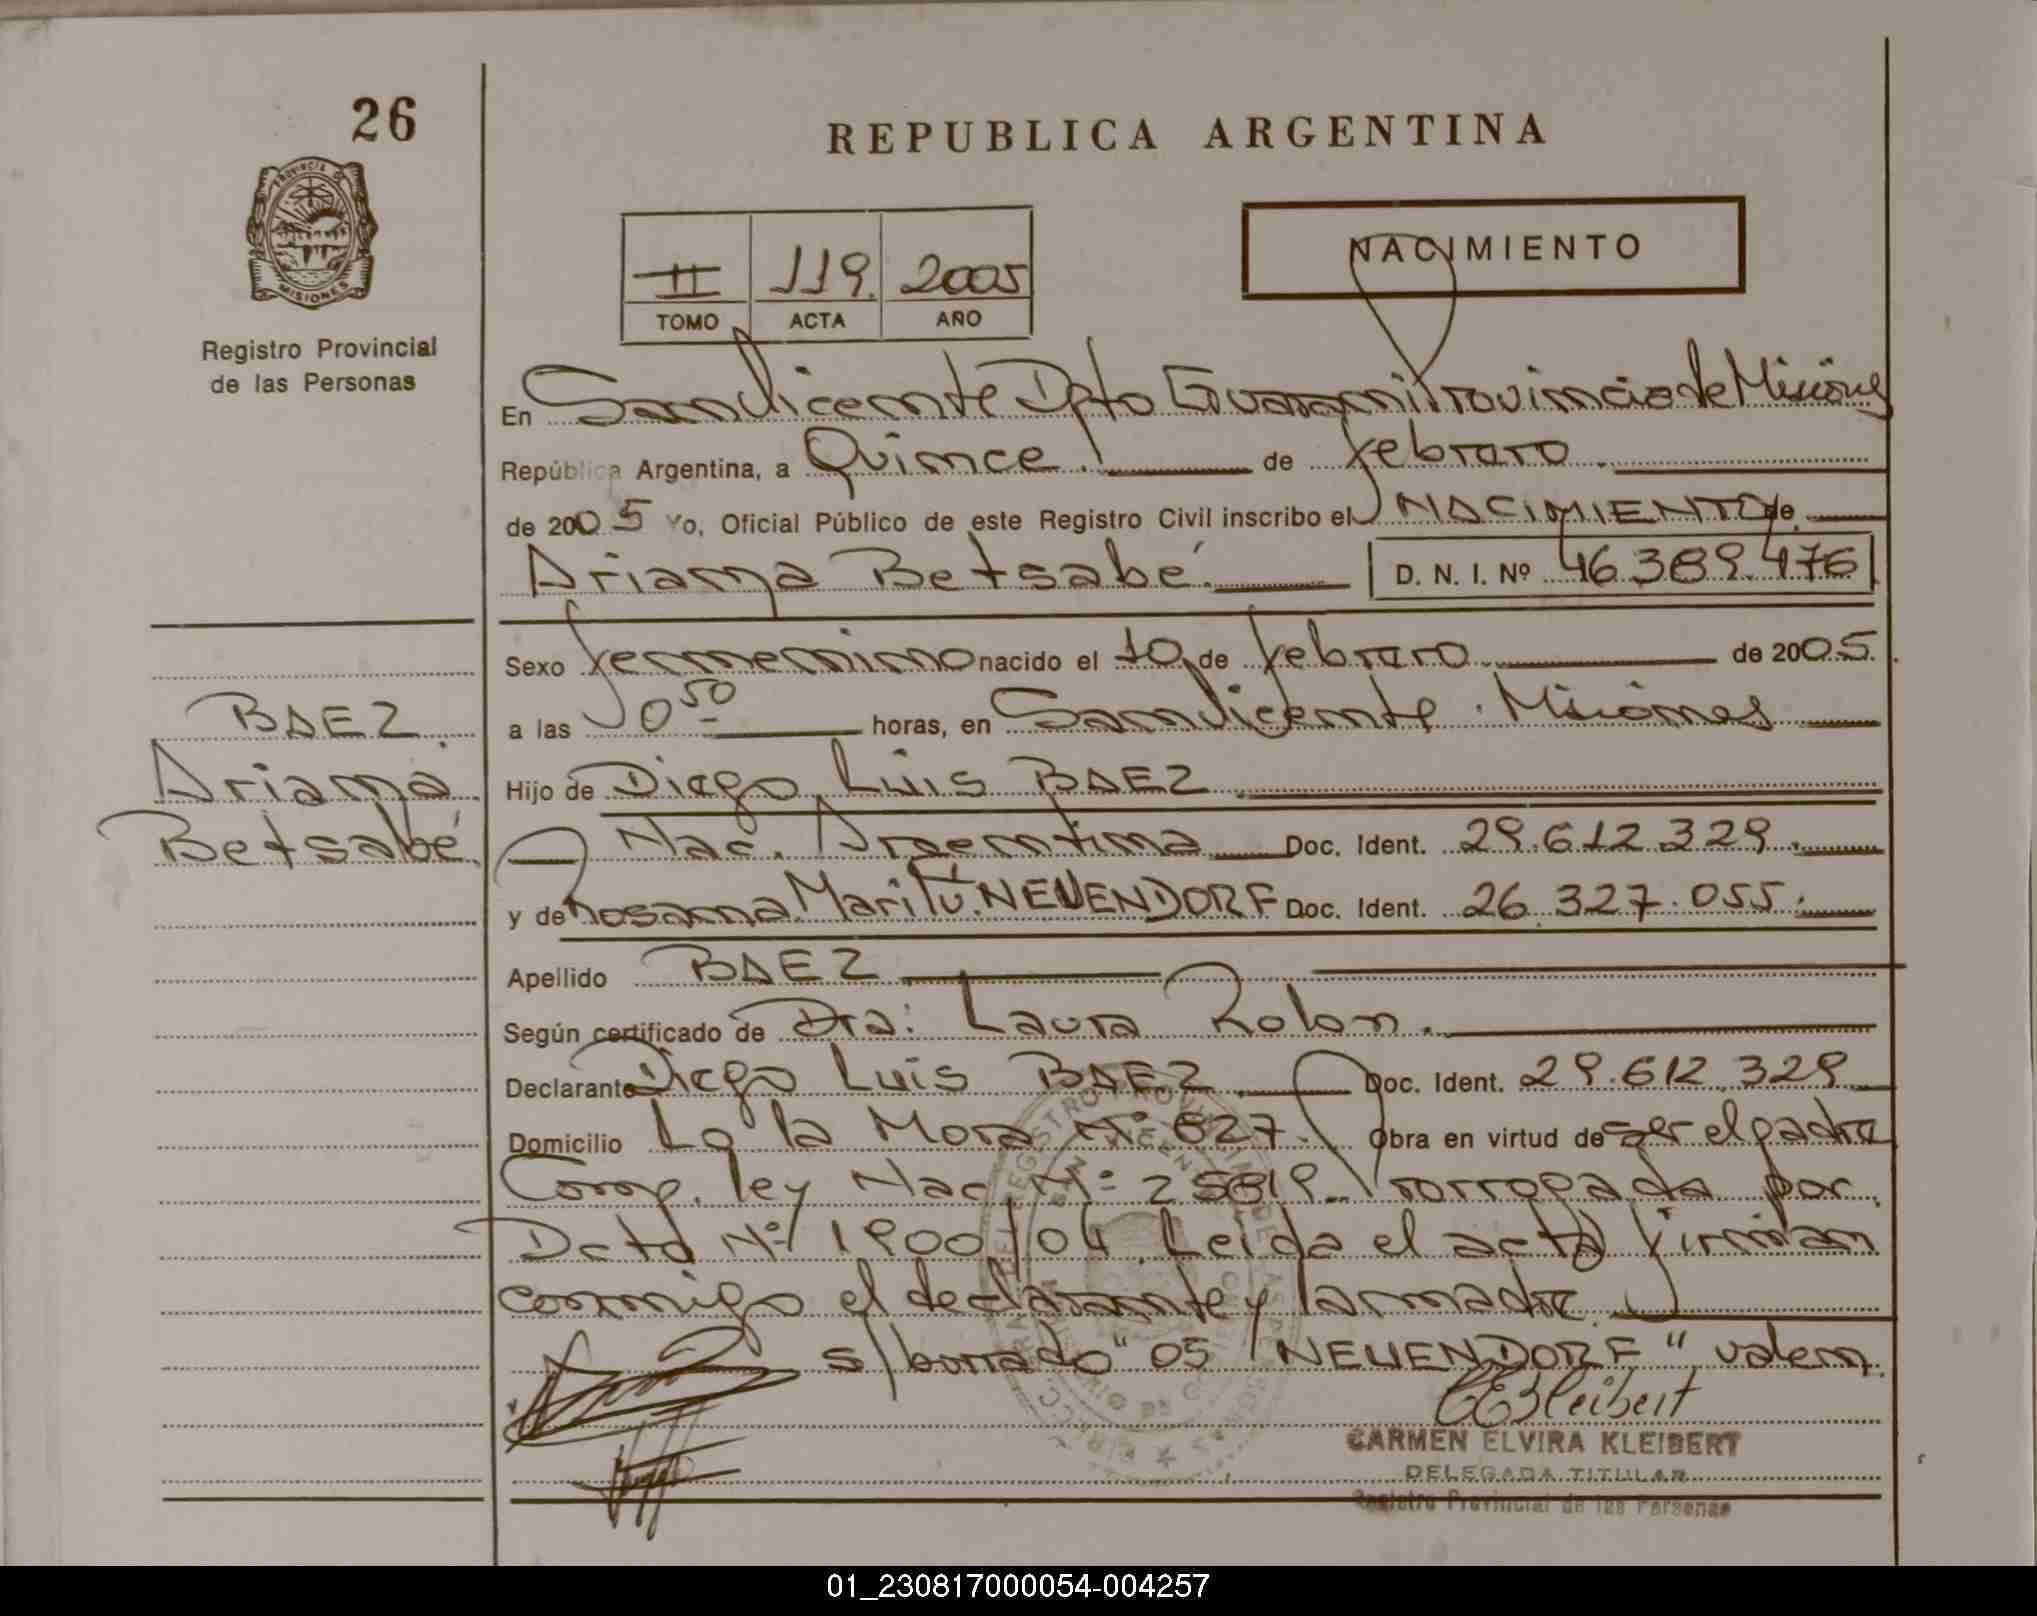 26
REPUBLICA ARGENTINA
PROVINCIA DE
MISIONES
Registro Provincial
de las Personas
II 119. 2005
TOMO ACTA AÑO
NACIMIENTO
En San Vicente Dpto Guarani Provincia de Misiones
República Argentina, a Quince. de febrero.
de 2005 Yo, Oficial Público de este Registro Civil inscribo el NACIMIENTO de
Ariana Betsabé. D. N. I. Nº 46.389.476
Sexo femenino nacido el 10 de febrero de 2005.
a las 0 50 horas, en San Vicente. Misiones
Hijo de Diego Luis BAEZ
Nac. Argentina Doc. Ident. 29.612.329.
y de Rosanna Marilú. NEUENDORF Doc. Ident. 26.327.055.
Apellido BAEZ
Según certificado de Dra. Laura Rolon.
Declarante Diego Luis BAEZ Doc. Ident. 29.612.329
Domicilio La Mora Nº 627. Obra en virtud de ser el padre
Comp. ley Nac. Nº 25819 Prorrogada por
Dcto Nº 1900/04 Leida el acta firman
conmigo el declarante y la madre.
s/borrado "05 NEUENDORF" valen.
BAEZ.
Ariana
Betsabé.
CEKleibert
CARMEN ELVIRA KLEIBERT
DELEGADA TITULAR
Registro Provincial de las Personas
01_230817000054-004257